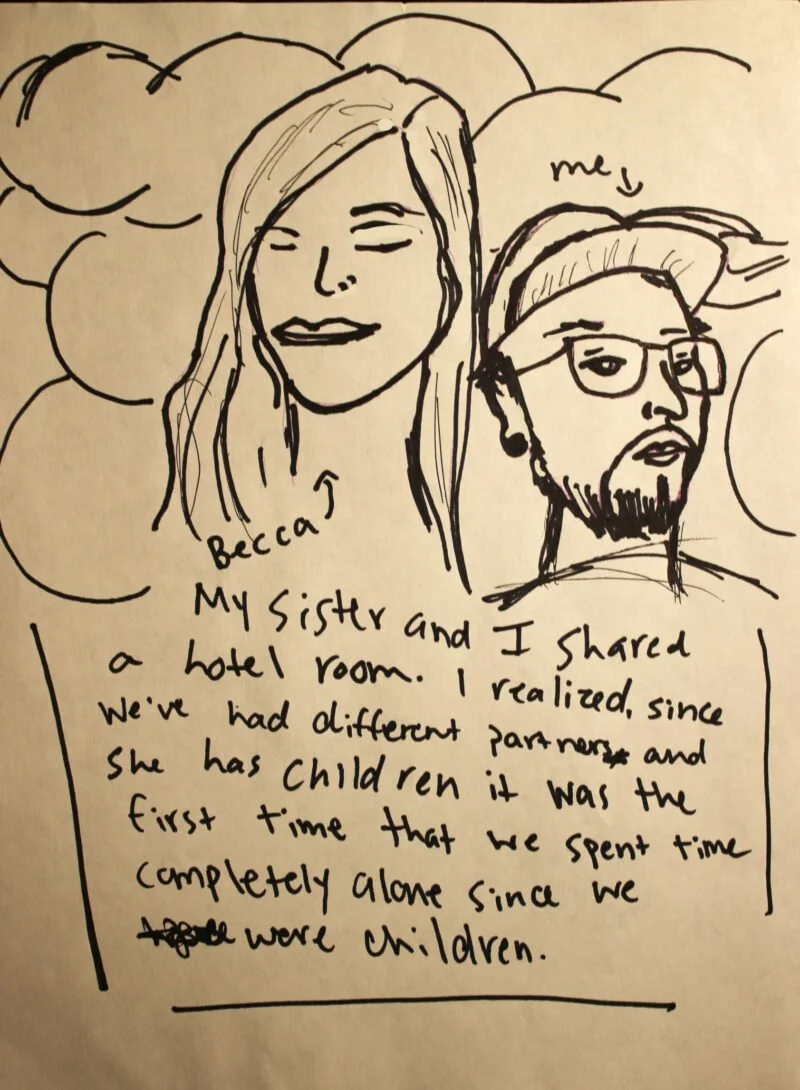 me
Becca
My sister and I shared
a hotel room. I realized, since
we've had different partners and
she has children it was the
first time that we spent time
completely alone since we
were children.